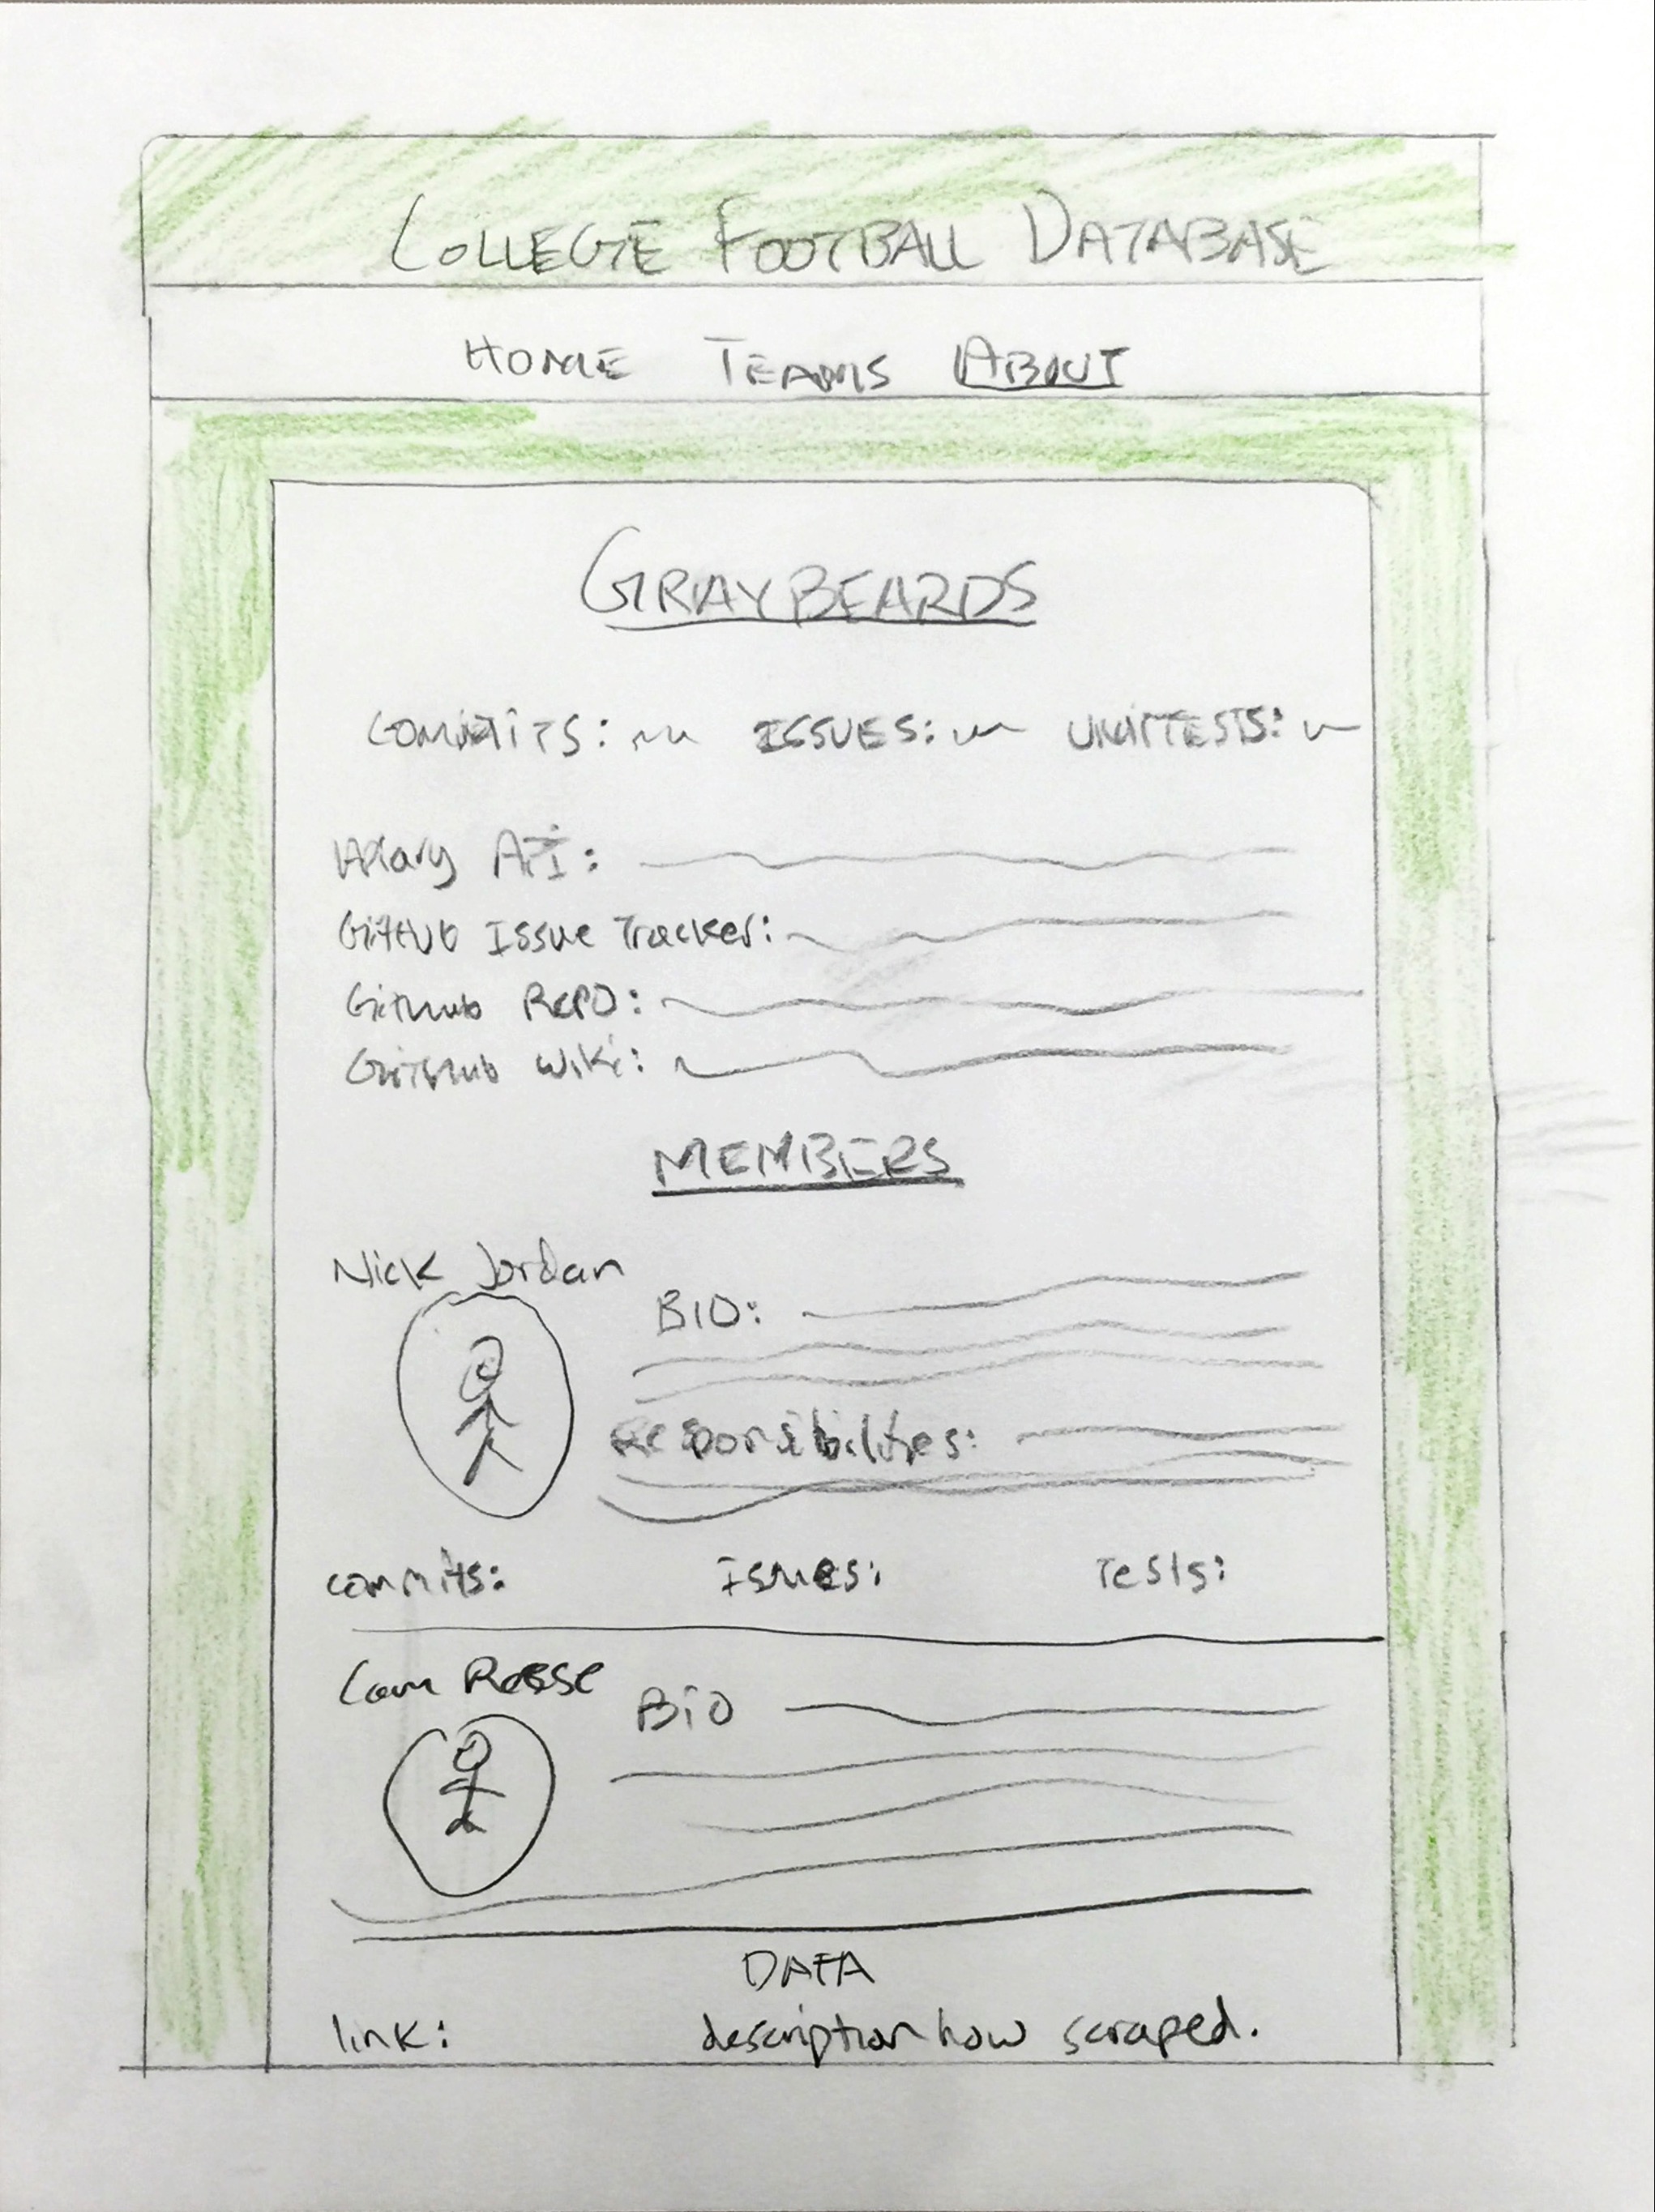 COLLEGE FOOTBALL DATABASE
HOME TEAMS ABOUT
GRAYBEARDS
COMMITS: ISSUES: UNITTESTS:
Apiary API:
GitHub Issue Tracker:
GitHub Repo:
GitHub Wiki:
MEMBERS
Nick Jordan
BIO:
Responsibilities:
commits: Issues: Tests:
Cam
BIO
DATA
link: description how scraped.